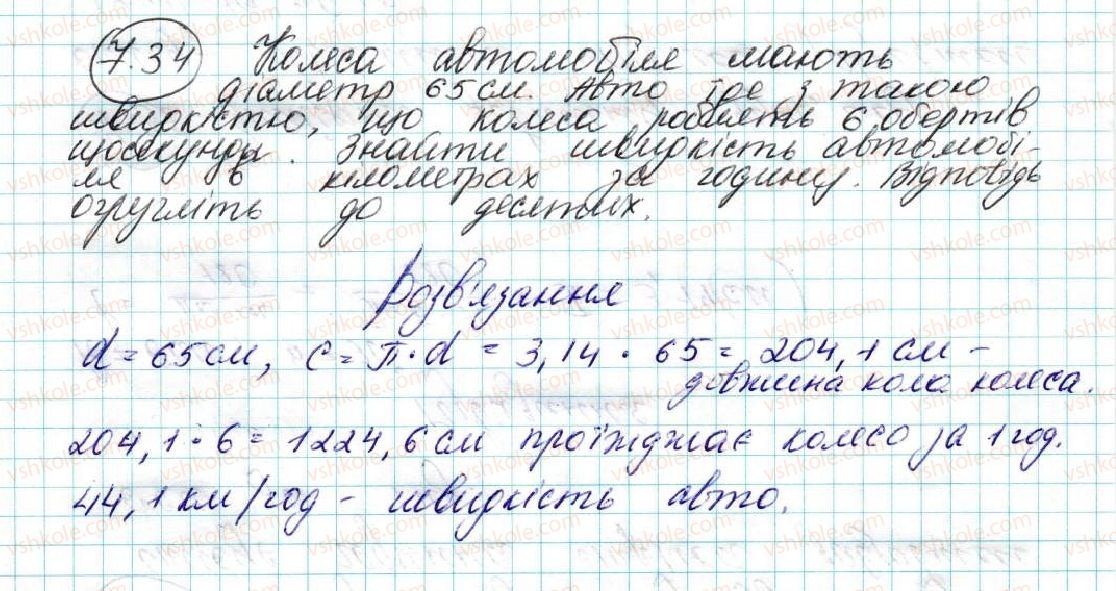 7.34 Колеса автомобіля мають
діаметр 65 см. Авто їде з такою
швидкістю, що колеса роблять 6 обертів
щосекунди. Знайти швидкість автомобі-
ля в кілометрах за годину. Відповідь
округліть до десятих.
Розв'язання
d = 65 см, C = π · d = 3,14 · 65 = 204,1 см –
довжина кола колеса.
204,1 · 6 = 1224,6 см проїжджає колесо за 1 год.
44,1 км/год – швидкість авто.